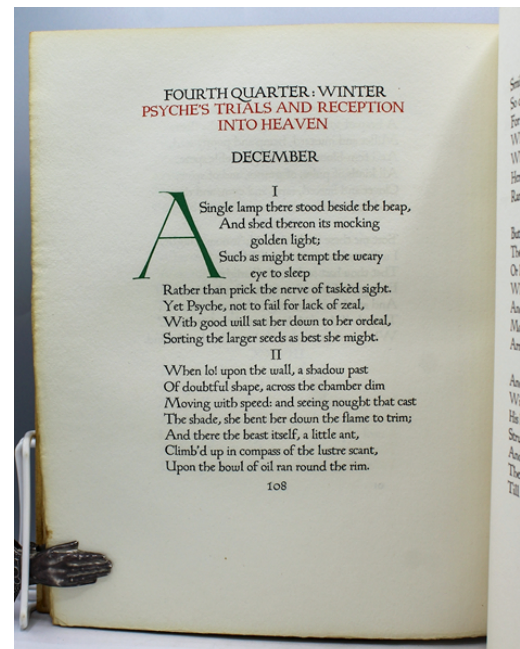 FOURTH QUARTER: WINTER
PSYCHE'S TRIALS AND RECEPTION
INTO HEAVEN
DECEMBER
I
A Single lamp there stood beside the heap,
And shed thereon its mocking
golden light;
Such as might tempt the weary
eye to sleep
Rather than prick the nerve of taskèd sight.
Yet Psyche, not to fail for lack of zeal,
With good will sat her down to her ordeal,
Sorting the larger seeds as best she might.
II
When lo! upon the wall, a shadow past
Of doubtful shape, across the chamber dim
Moving with speed: and seeing nought that cast
The shade, she bent her down the flame to trim;
And there the beast itself, a little ant,
Climb'd up in compass of the lustre scant,
Upon the bowl of oil ran round the rim.
108